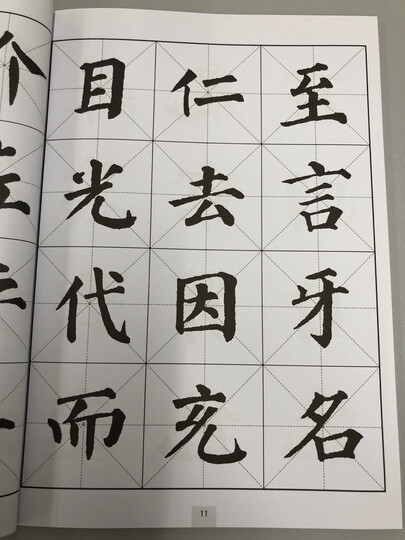 至言牙名
仁去因充
目光代而
11